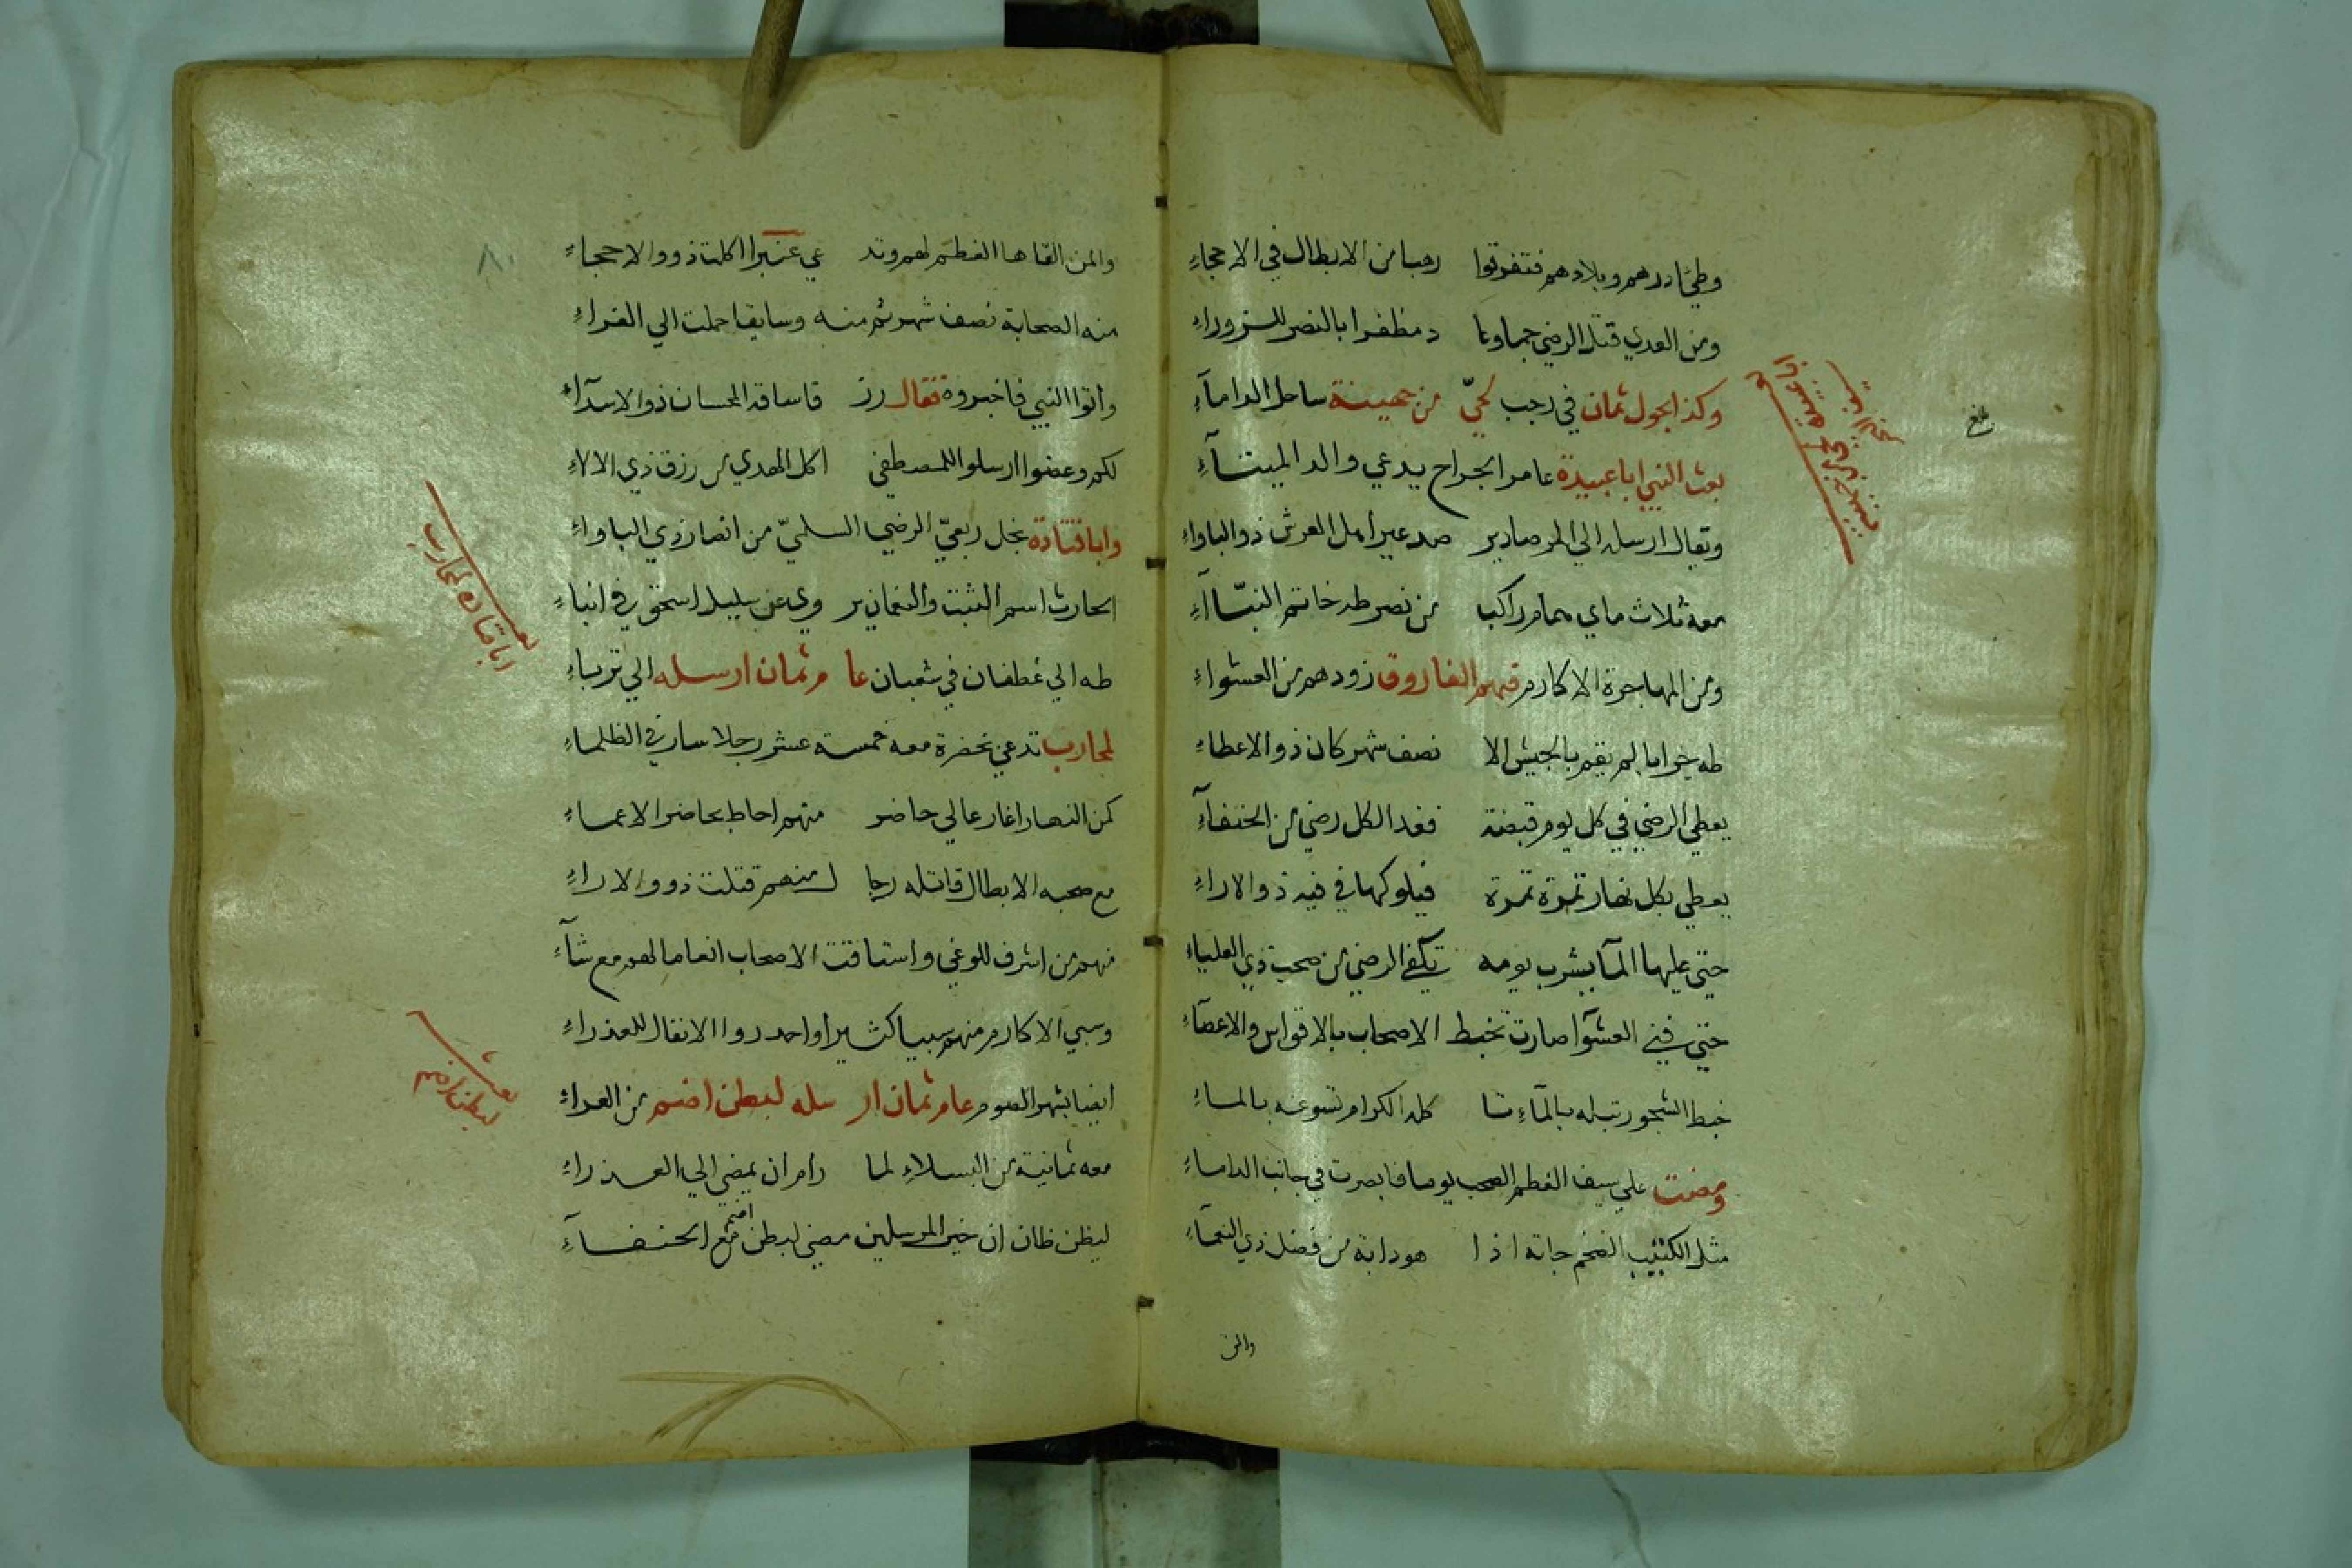 وطئ دارهم وبلادهم فتفرقوا رهبا من الابطال في الاحجاء
ومن العدي قتل الرضي جما وعا د مظفرا بالنصر للزوراء
وكذا بحول ثمان في رجب لحيّ من جهينة ساحل الدامآء
بعث النبي ابا عبيدة عامر الجراح يدعي والد الميتآء
ويقال ارسله الي المرصاد عير اهل العرش ذو الباواء
معه ثلاث ماي همام راكبا من نصر طه خاتم النبّاآء
ومن المهاجرة الاكارم فيهم الفاروق زودهم من العشواء
طه جرابا لم يقم بالجيش الا نصف شهر كان ذو الاعطاء
يعطي الرضي في كل يوم قبضة فغدا لكل رضي من الحنفآء
يعطي بكل نهار تمرة تمرة فيلوكها في فيه ذو الاراء
حتي عليها المآ يشرب يومه تكفي الرضي من صحب ذي العلياء
حتي فني العشوا صارت تخبط الاصحاب بالاقواس والاعصآء
خبط الشجور تبله بالمآء تا كله الكرام تسوغه بالماء
ومضت علي سيف الغطم الصحب يوما فابصرت في جانب الداماء
مثل الكثيب الضخم جاته اذا هو دابة من فضل ذي النعمآء
والمن
بلغ
والمن القاها الغطم لهم وتد عي عنبرا اكلت ذوو الاحجاء
منه الصحابة نصف شهر ثم منه وسايقا حملت الي الغراء
واتوا النبي فاخبروه فقال رز قا ساقه المحسان ذو الاسدآء
لكم وعضوا ارسلوا للمصطفي اكل المهدي من رزق ذي الالاء
وابا قتادة نجل ربعيّ الرضي السلميّ من انصار ذي الباواء
الحارث اسم الثبت والنعمان ير وي عن سليل اسحق في انباء
طه الي غطفان في شعبان عا م ثمان ارسله الي تربـاء
لمحارب تدعي بخضرة معه خمسة عشر رجلا سار في الظلماء
كمن النهار اغار عا لي حاضر منهم احاط بحاضر الاعماء
مع صحبه الابطال قاتله رجا ل منهم قتلت ذوو الاراء
منهم من اشرف للوغي واستاقت الاصحاب انعاما لهم مع شآء
وسبي الاكارم منهم سبيا كثيرا واحدروا الانفال للعذراء
ايضا بشهر الصوم عام ثمان ار سله لبطن اضم من العداء
معه ثمانية من البسلاء لما رام ان يمضي الي العذراء
ليظن ظان ان خير المرسلين مضي لبطن اضم مع الحنفـآء
ابا قتادة لمحارب
بعث
لبطن اضم